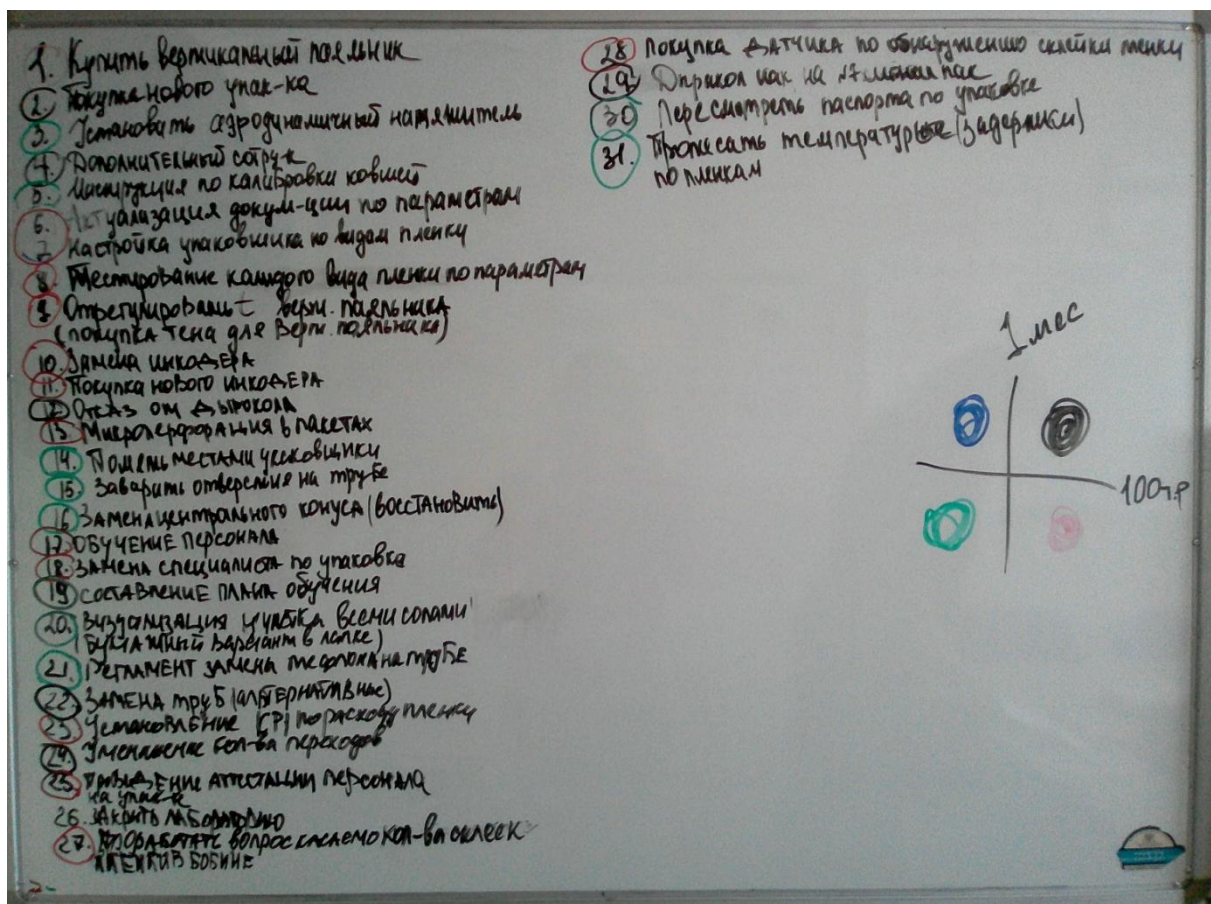 1. Купить вертикальный паяльник
2. Покупка нового упак-ка
3. Установить аэродинамичный натяжитель
4. Дополнительный сотр-к
5. Инструкция по калибровки ковшей
6. Актуализация докум-ции по параметрам
7 Настройка упаковщика по видам пленки
8. Тестирование каждого вида пленки по параметрам
9. Отрегулировать t верт. паяльника
(покупка тена для верт. паяльника)
10. Замена инкодера
11. Покупка нового инкодера
12 Отказ от дырокола
13. Микроперфорация в пакетах
14. Поменять местами упаковщики
15. Заварить отверстия на трубе
16 Замена центрального конуса (восстановить)
17 Обучение персонала
18. Замена специалиста по упаковка
19 Составление плана обучения
20. Визуализация участка всеми сопами
(бумажный вариант в папке)
21. Регламент замены тефлона на трубе
22. Замена труб (альтернативные)
23. Установление KPI по расходу пленки
24. Уменьшение кол-ва переходов
25. Проведение аттестации персонала
на упак-е
26. Закрить лабораторию
27. Проработать вопрос касаемо кол-ва склеек
пленки в бобине
28 Покупка датчика по обнаружению склейки пленки
29. Дырокол как на №7
30 Пересмотреть паспорта по упаковке
31. Прописать температуры (задержки)
по пленкам
1 мес
100 т.р